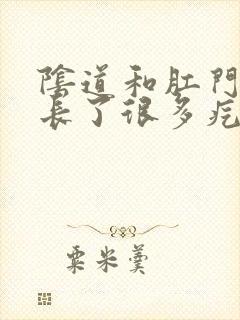 陰道和肛門
長了很多疙
粟米羹